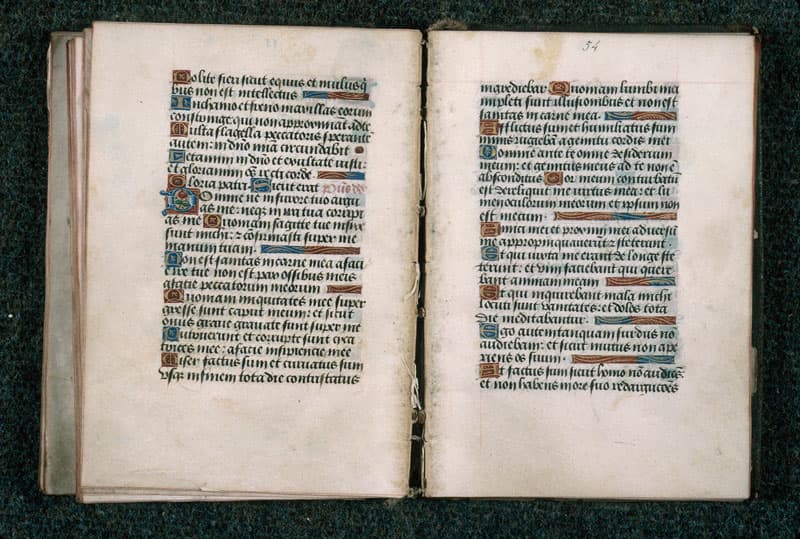 Nolite fieri sicut equus et mulus q̄
bus non est intellectus
In chamo et freno maxillas eorum
constringe: qui non approximāt ad te
Multa flagella peccatoris sperante
autem in dn̄o mīa circundabit
Letamini in dn̄o et exultate iusti:
et gloriamini oēs recti corde
Gloria patri Sicut erat
Domine ne in furore tuo argu
as me: neq; in ira tua corripi
as me Quoniam sagitte tue infixe
sunt michi: et cōfirmasti super me
manum tuam
Non est sanitas in carne mea a faci
e ire tue non est pax ossibus meis
a facie peccatorum meorum
Quoniam iniquitates mee super
gresse sunt caput meum: et sicut
onus grave gravate sunt super me
Putruerunt et corrupte sunt cica
trices mee: a facie insipiencie mee
Miser factus sum et curvatus sum
usq; in finem tota die contristatus
54
ingrediebar Quoniam lumbi mei
impleti sunt illusionibus et non est
sanitas in carne mea
Afflictus sum et humiliatus sum
nimis: rugiebā a gemitu cordis mei
Domine ante te omne desiderium
meum: et gemitus meus ad te non ē
absconditus Cor meum conturbatū
est dereliquit me virtus mea: et lu
men oculorum meorum et ipsum non
est mecum
Amici mei et proximi mei adversū
me appropinquaverūt et steterunt
Et qui iuxta me erant de longe ste
terunt: et vim faciebant qui quere
bant animam meam
Et qui inquirebant mala michi
locuti sunt vanitates: et dolos tota
die meditabantur
Ego autem tanquam surdus nō
audiebam: et sicut mutus non ape
riens os suum
Et factus sum sicut homo nō audiēs:
et non habens in ore suo redarguciōēs